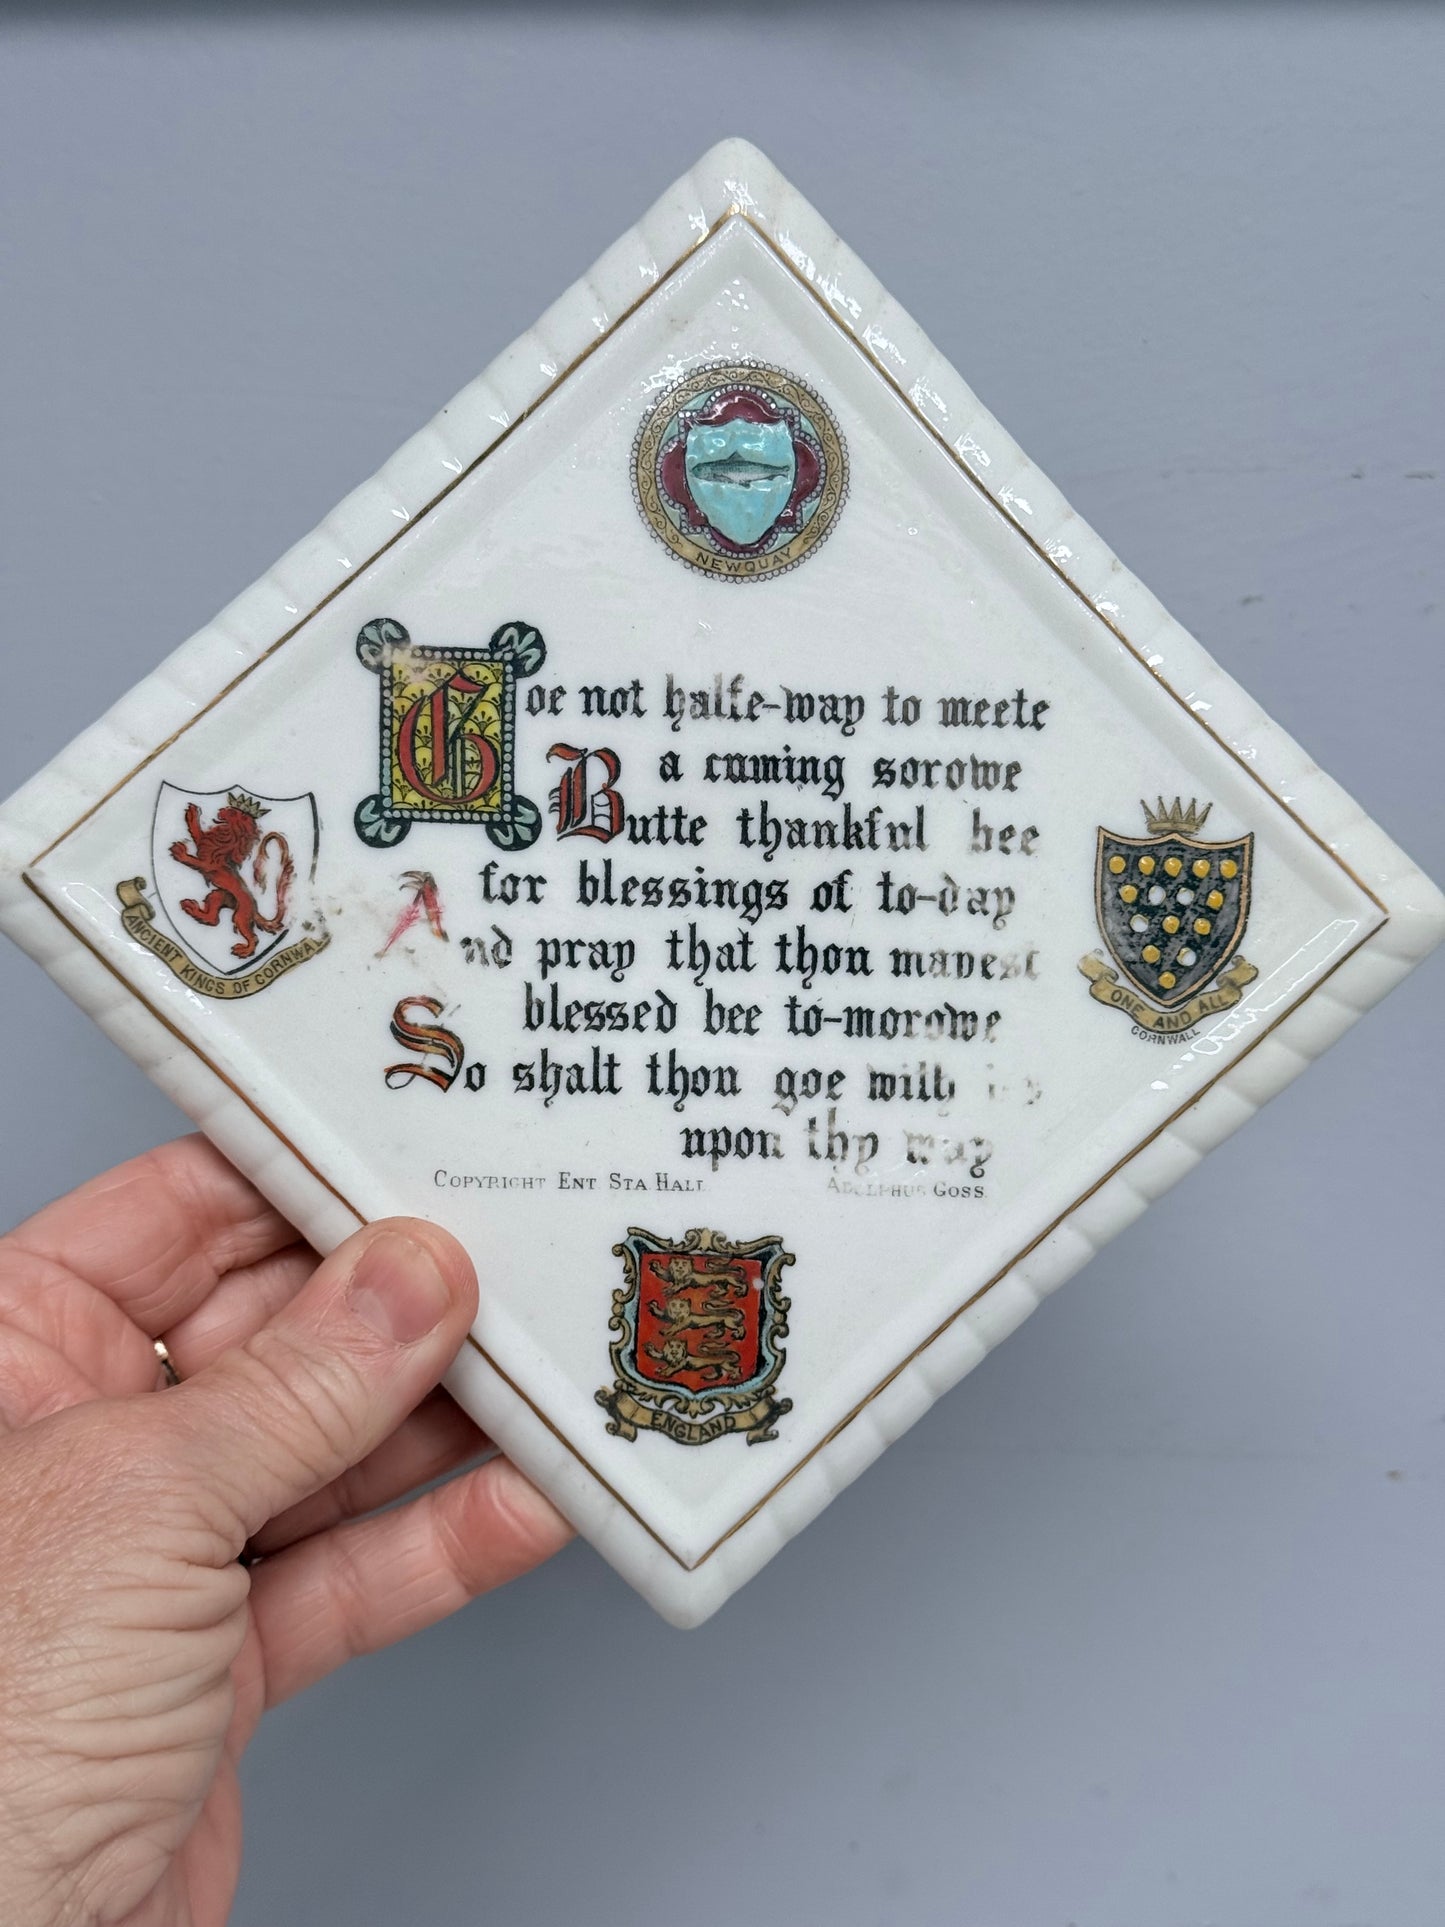 NEWQUAY
Goe not halfe-way to meete
a cuming sorowe
Butte thankful bee
for blessings of to-day
And pray that thou mayest
blessed bee to-morowe
So shalt thou goe with
upon thy way
COPYRIGHT ENT. STA. HALL
ADOLPHUS GOSS.
ANCIENT KINGS OF CORNWALL
ONE AND ALL
CORNWALL
ENGLAND